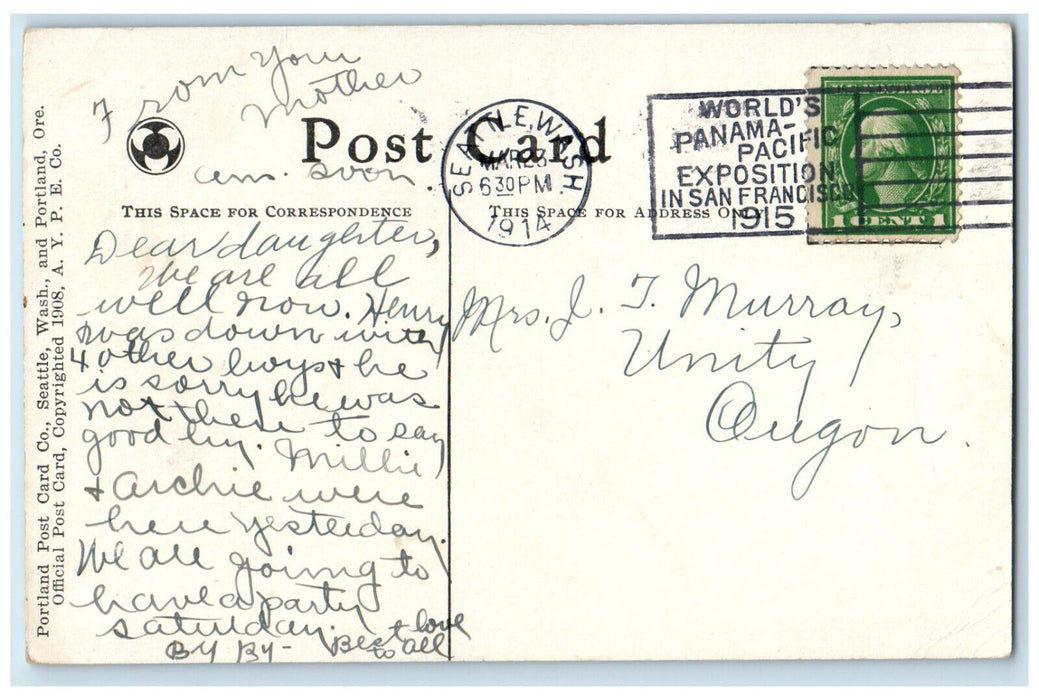 From your
mother
Post Card
ans. soon.
THIS SPACE FOR CORRESPONDENCE
Dear daughter,
We are all
well now. Henry
was down with
4 other boys & he
is sorry he was
not there to say
good by. Millie
& Archie were
here yesterday.
We are going to
have a party
saturday.
By By- Best love
to all
Portland Post Card Co., Seattle, Wash., and Portland, Ore.
Official Post Card, Copyrighted 1908, A. Y. P. E. Co.
SEATTLE, WASH
MAR 23
6 30 PM
1914
WORLD'S
PANAMA-
PACIFIC
EXPOSITION
IN SAN FRANCISCO
1915
1 CENT 1
THIS SPACE FOR ADDRESS ONLY
Mrs. J. T. Murray,
Unity
Oregon.